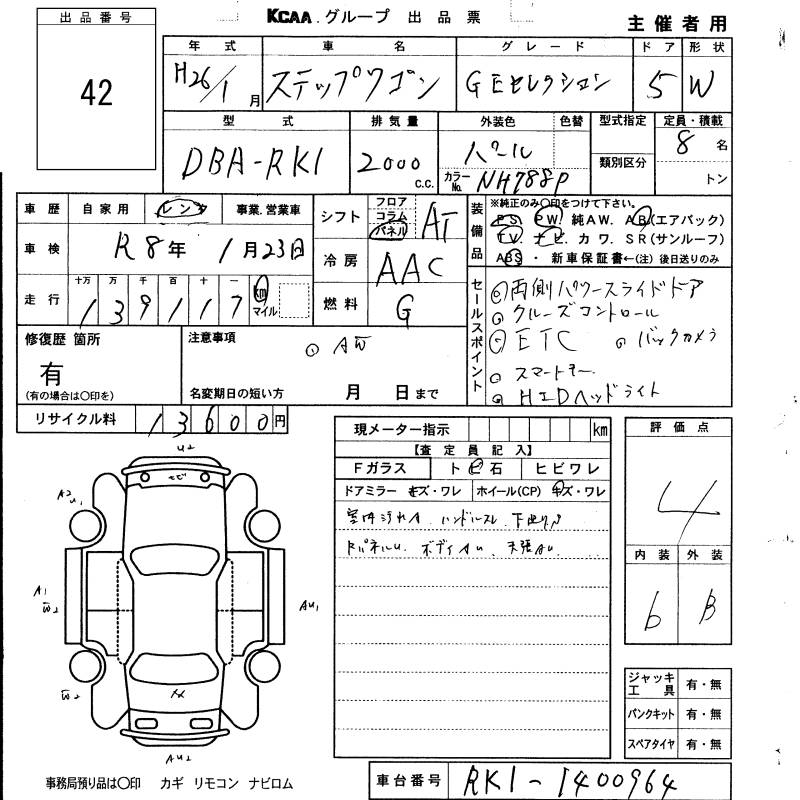 KCAA グループ 出品票
主催者用
出品番号
42
年式 車名 グレード ドア 形状
H26/1月 ステップワゴン GEセレクション 5 W
型式 排気量 外装色 色替 型式指定 定員・積載
DBA-RK1 2000 C.C. パール 8名
カラーNo. NH788P 類別区分 トン
車歴 自家用 レンタ 事業.営業車
シフト フロア コラム パネル AT
装備品 ※純正のみ〇印をつけて下さい。
PS. PW. 純AW. AB(エアバック)
TV. ナビ. カワ. SR(サンルーフ)
ABS ・ 新車保証書←(注)後日送りのみ
車検 R8年 1月23日
冷房 AAC
走行 十万 万 千 百 十 一
139117 km マイル
燃料 G
セールスポイント
両側パワースライドドア
クルーズコントロール
ETC バックカメラ
スマートキー
HIDヘッドライト
修復歴 箇所
有
(有の場合は〇印を)
注意事項
AW
名変期日の短い方 月 日まで
リサイクル料 13600円
現メーター指示 km
【査定員記入】
Fガラス ト ビ 石 ヒビワレ
ドアミラー キズ・ワレ ホイール(CP) キズ・ワレ
室内汚れA ハンドルスレ 下廻りS
RパネルU ボディAU 天張AU
評価点
4
内装 外装
b B
U2
ナビ
A2 U1
A1
W2
AU1
W2
AU2
ジャッキ工具 有・無
パンクキット 有・無
スペアタイヤ 有・無
事務局預り品は〇印 カギ リモコン ナビロム
車台番号 RK1-1400964